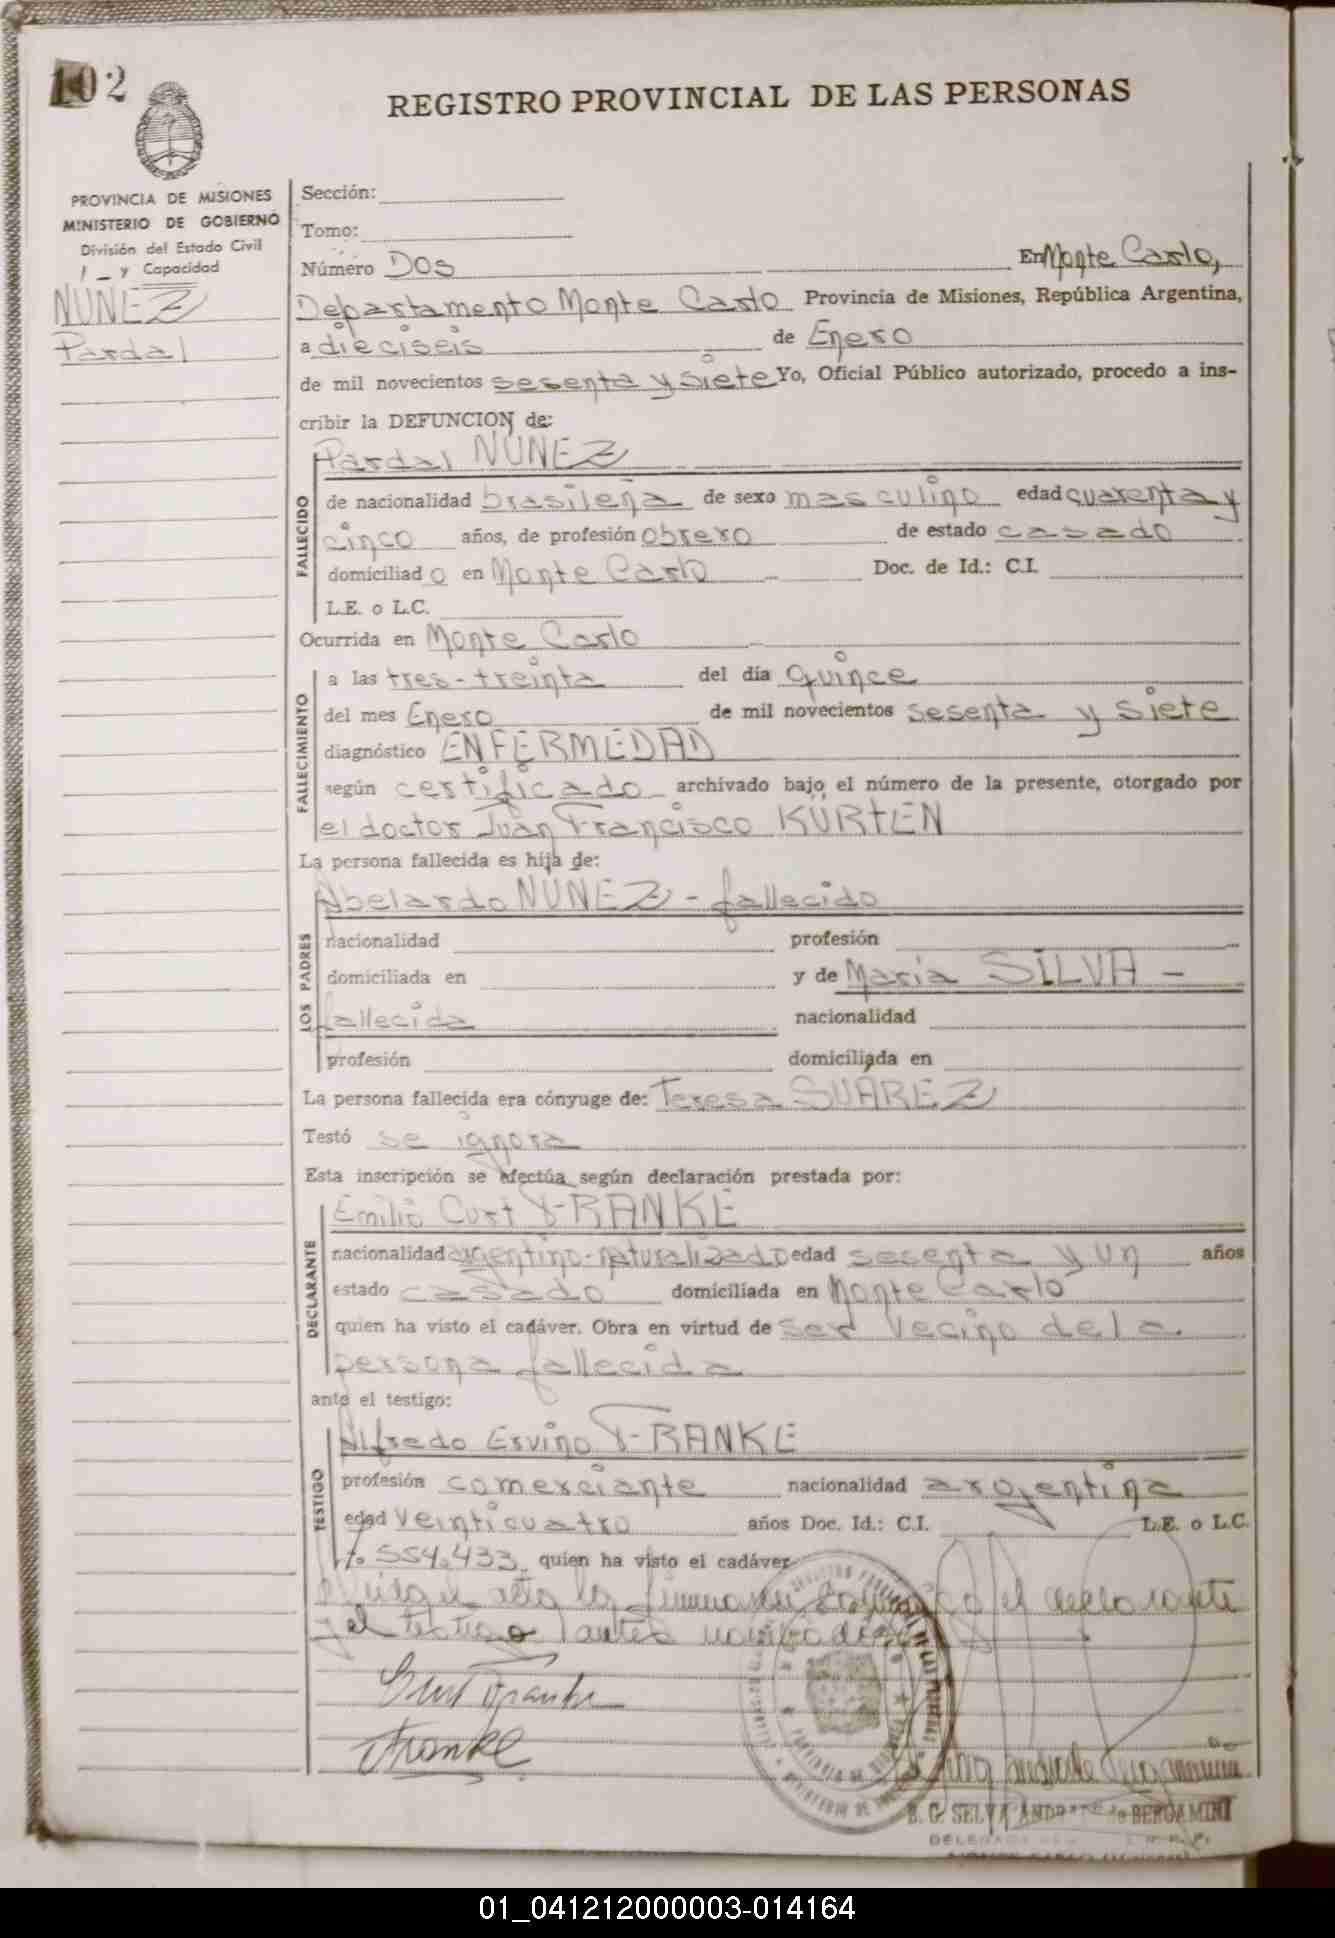 102
REGISTRO PROVINCIAL DE LAS PERSONAS
PROVINCIA DE MISIONES
MINISTERIO DE GOBIERNO
División del Estado Civil
y Capacidad
NUÑEZ
Pardal
Sección:
Tomo:
Número DOS En Monte Carlo,
Departamento Monte Carlo Provincia de Misiones, República Argentina,
a dieciseis de Enero
de mil novecientos sesenta y siete Yo, Oficial Público autorizado, procedo a ins-
cribir la DEFUNCION de:
Pardal NUÑEZ
FALLECIDO
de nacionalidad brasileña de sexo masculino edad cuarenta y
cinco años, de profesión obrero de estado casado
domiciliado en Monte Carlo Doc. de Id.: C.I.
L.E. o L.C.
Ocurrida en Monte Carlo
FALLECIMIENTO
a las tres-treinta del día quince
del mes Enero de mil novecientos sesenta y siete
diagnóstico ENFERMEDAD
según certificado archivado bajo el número de la presente, otorgado por
el doctor Juan Francisco KÜRTEN
La persona fallecida es hija de:
LOS PADRES
Abelardo NUÑEZ - fallecido
nacionalidad profesión
domiciliada en y de Maria SILVA -
fallecida nacionalidad
profesión domiciliada en
La persona fallecida era cónyuge de: Teresa SUAREZ
Testó se ignora
Esta inscripción se efectúa según declaración prestada por:
DECLARANTE
Emilio Curt FRANKE
nacionalidad argentino-naturalizado edad sesenta y un años
estado casado domiciliada en Monte Carlo
quien ha visto el cadáver. Obra en virtud de ser vecino de la
persona fallecida
ante el testigo:
TESTIGO
Alfredo Ervino FRANKE
profesión comerciante nacionalidad argentina
edad veinticuatro años Doc. Id.: C.I. L.E. o L.C.
7.554.433 quien ha visto el cadáver
el declarante
y el testigo antes
Curt Franke
Franke
B. G. SELVA ANDRADE BERGAMINI
01_041212000003-014164